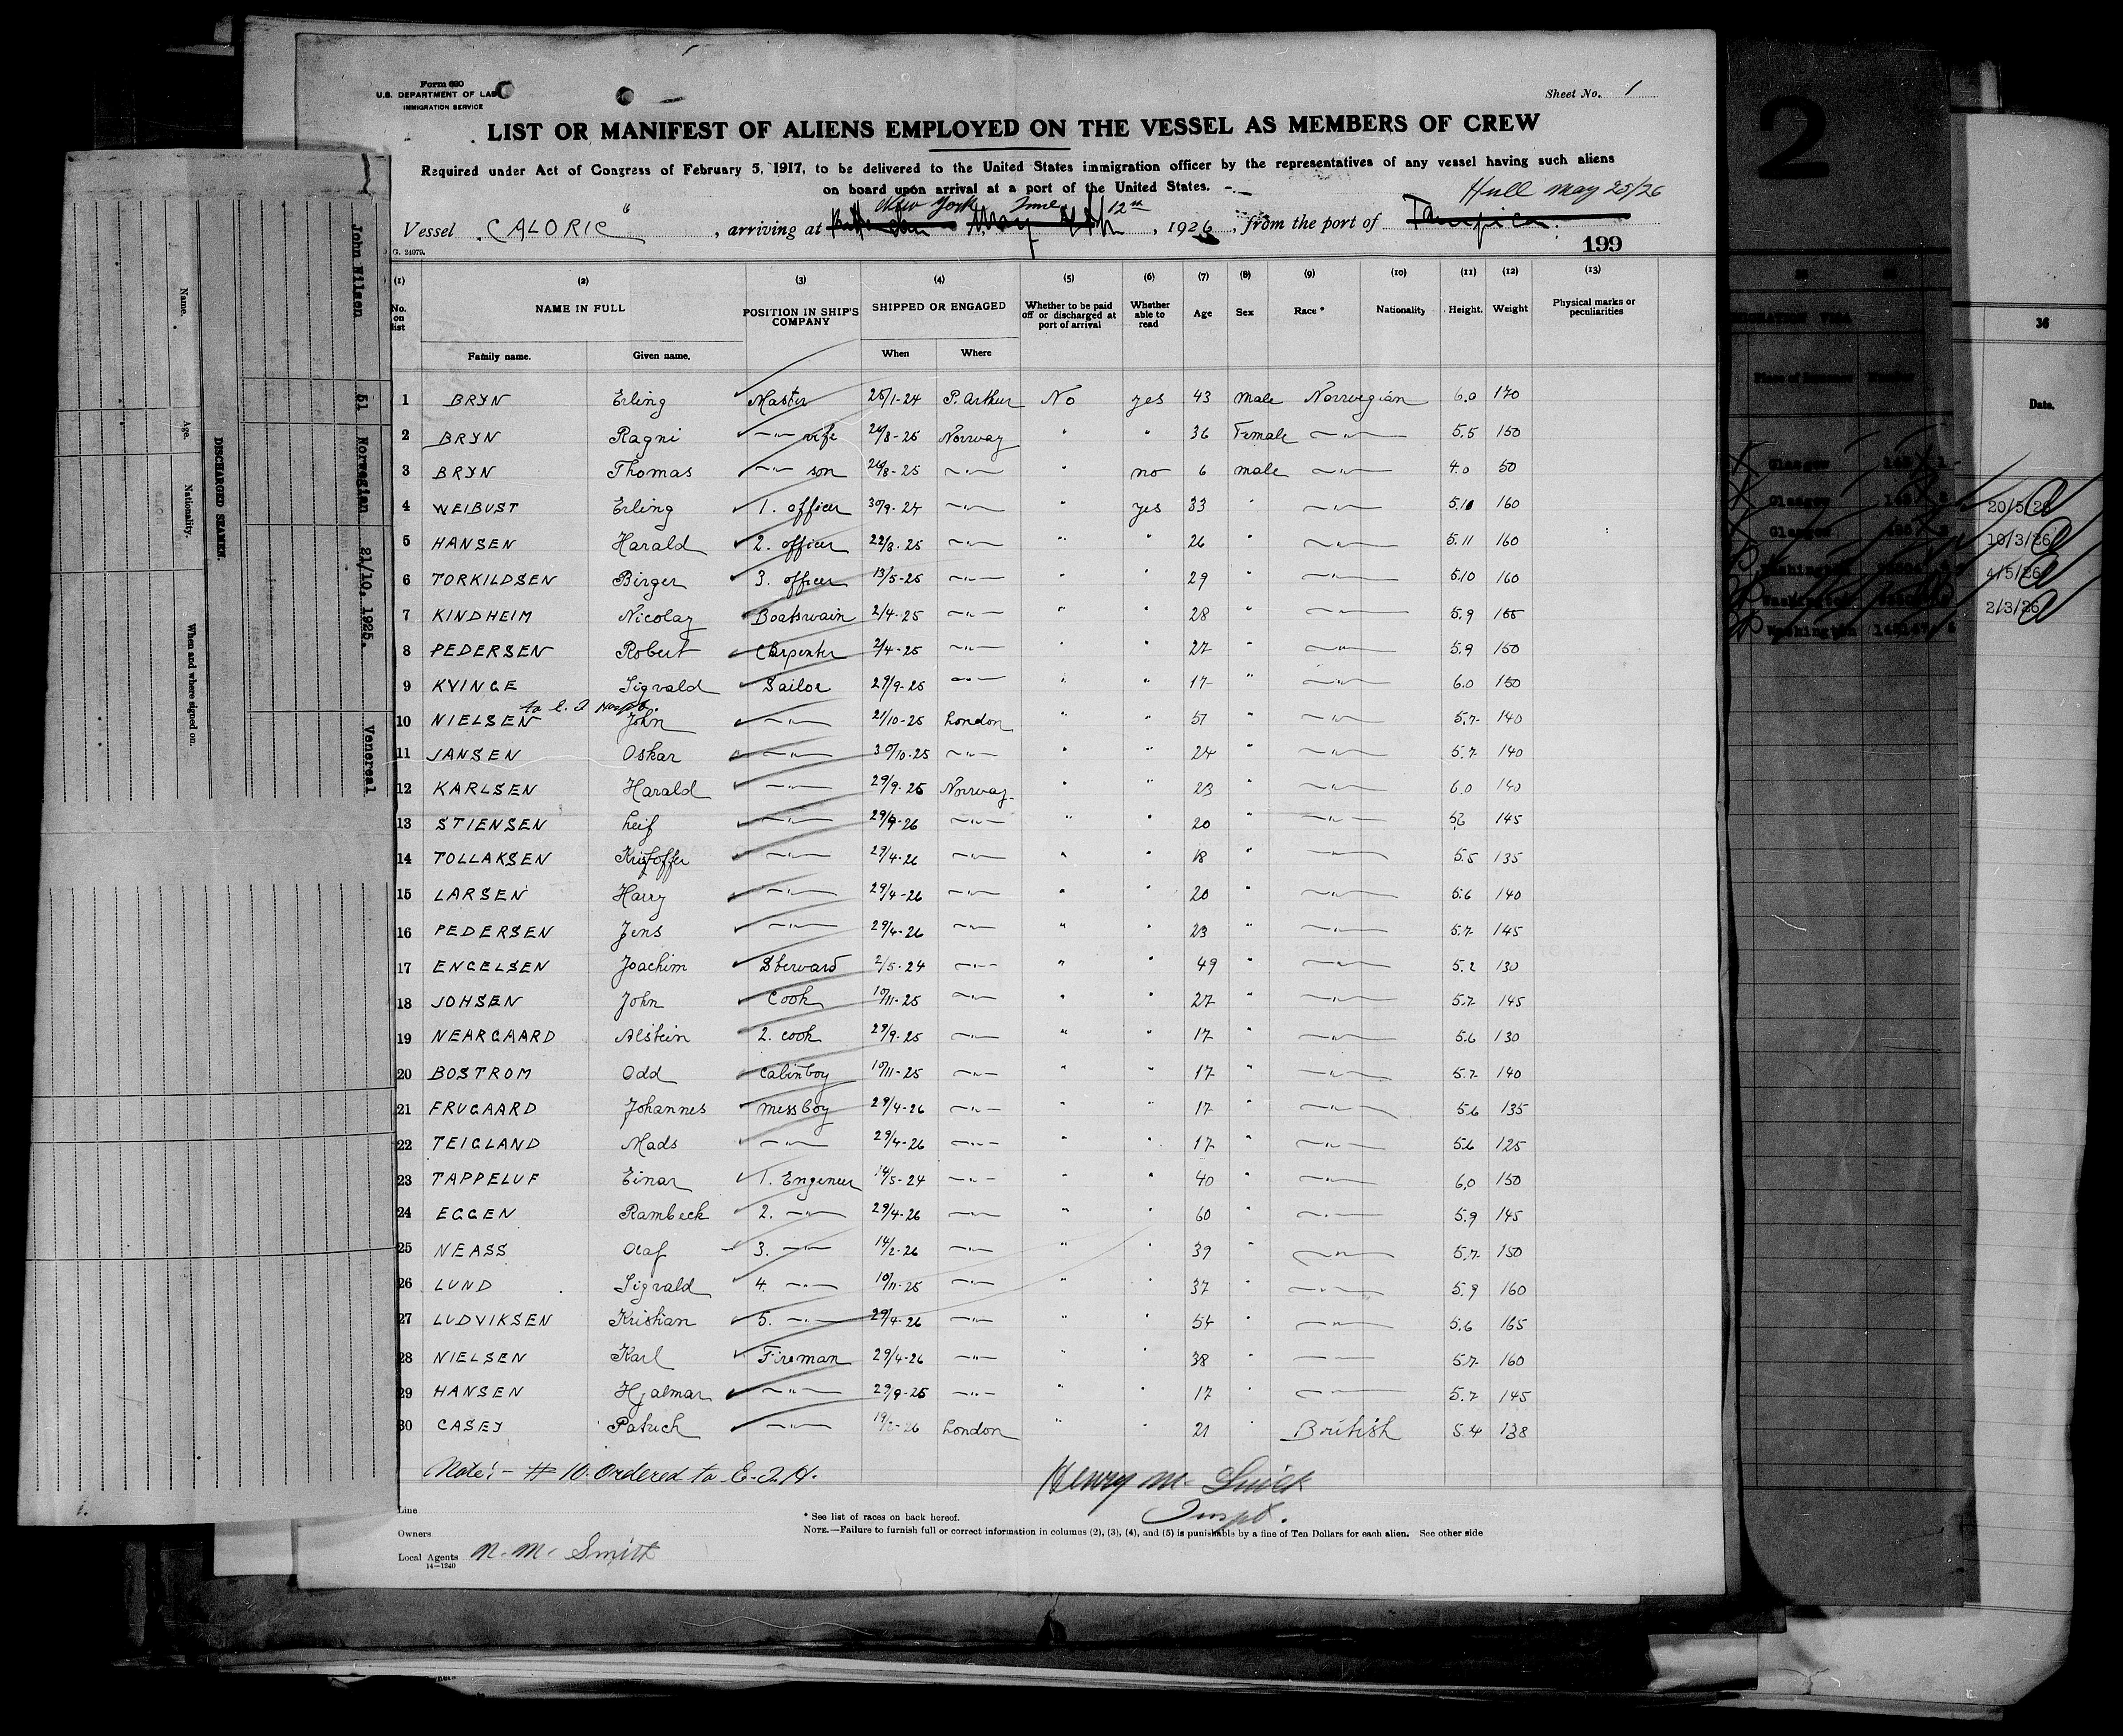 Form 680
U.S. DEPARTMENT OF LAB
IMMIGRATION SERVICE
Sheet No. 1
LIST OR MANIFEST OF ALIENS EMPLOYED ON THE VESSEL AS MEMBERS OF CREW
Required under Act of Congress of February 5, 1917, to be delivered to the United States immigration officer by the representatives of any vessel having such aliens
on board upon arrival at a port of the United States.
Hull May 25/26
New York June 12th
Vessel "CALORIC", arriving at May, 1926, from the port of Tampico.
G. 24079.
199
(1) (2) (3) (4) (5) (6) (7) (8) (9) (10) (11) (12) (13)
No. on list NAME IN FULL POSITION IN SHIP'S COMPANY SHIPPED OR ENGAGED Whether to be paid off or discharged at port of arrival Whether able to read Age Sex Race * Nationality Height. Weight Physical marks or peculiarities
Family name. Given name. When Where
1 BRYN Erling Master 25/1-24 P. Arthur No yes 43 male Norwegian 6.0 170
2 BRYN Ragni -"- wife 26/8-25 Norway " " 36 Female -"- 5.5 150
3 BRYN Thomas -"- son 26/8-25 -"- " no 6 male -"- 4.0 50
4 WEIBUST Erling 1. officer 30/9-24 -"- " yes 33 " -"- 5.10 160
5 HANSEN Harald 2. officer 22/8-25 -"- " " 26 " -"- 5.11 160
6 TORKILDSEN Birger 3. officer 13/5-25 -"- " " 29 " -"- 5.10 160
7 KINDHEIM Nicolay Boatswain 2/4-25 -"- " " 28 " -"- 5.9 155
8 PEDERSEN Robert Carpenter 2/4-25 -"- " " 27 " -"- 5.9 150
9 KVINGE Sigvald Sailor 29/9-25 -"- " " 17 " -"- 6.0 150
to E. I Hosp.
10 NIELSEN John -"- 21/10-25 London " " 51 " -"- 5.7 140
11 JANSEN Oskar -"- 30/10-25 -"- " " 24 " -"- 5.7 140
12 KARLSEN Harald -"- 29/9-25 Norway " " 23 " -"- 6.0 140
13 STIENSEN Leif -"- 29/9-26 -"- " " 20 " -"- 145
14 TOLLAKSEN Kristoffer -"- 29/4-26 -"- " " 18 " -"- 5.5 135
15 LARSEN Harry -"- 29/4-26 -"- " " 20 " -"- 5.6 140
16 PEDERSEN Jens -"- 29/4-26 -"- " " 23 " -"- 5.7 145
17 ENGELSEN Joachim Steward 2/5-24 -"- " " 49 " -"- 5.2 130
18 JOHSEN John Cook 10/11-25 -"- " " 27 " -"- 5.7 145
19 NEARGAARD Alstein 2. cook 29/9-25 -"- " " 17 " -"- 5.6 130
20 BOSTROM Odd Cabinboy 10/11-25 -"- " " 17 " -"- 5.7 140
21 FRUGAARD Johannes messboy 29/4-26 -"- " " 17 " -"- 5.6 135
22 TEIGLAND Mads -"- 29/4-26 -"- " " 17 " -"- 5.6 125
23 TAPPELUF Einar 1. Engineer 14/5-24 -"- " " 40 " -"- 6.0 150
24 EGGEN Rambeck 2. -"- 29/4-26 -"- " " 60 " -"- 5.9 145
25 NEASS Olaf 3. -"- 14/2-26 -"- " " 39 " -"- 5.7 150
26 LUND Sigvald 4. -"- 10/11-25 -"- " " 37 " -"- 5.9 160
27 LUDVIKSEN Kristian 5. -"- 29/4-26 -"- " " 54 " -"- 5.6 165
28 NIELSEN Karl Fireman 29/4-26 -"- " " 38 " — 5.7 160
29 HANSEN Hjalmar -"- 29/9-25 -"- " " 17 " -"- 5.7 145
30 CASEY Patrick -"- London " " 21 " British 5.4 138
Note:- # 10. Ordered to E.I.H.
Henry M.
Inspt.
Line
* See list of races on back hereof.
Owners
NOTE.—Failure to furnish full or correct information in columns (2), (3), (4), and (5) is punishable by a fine of Ten Dollars for each alien. See other side
Local Agents N. M. Smith
14—1240
John Nilsen 51 Norwegian 21/10, 1925. Venereal
Name. Age. Nationality. When and where signed on.
DISCHARGED SEAMEN.
2
Place of
Glasgow
Glasgow
Glasgow
Washington
Washington
Washington
36
Date.
20/5/26
10/3/26
4/5/26
2/3/26